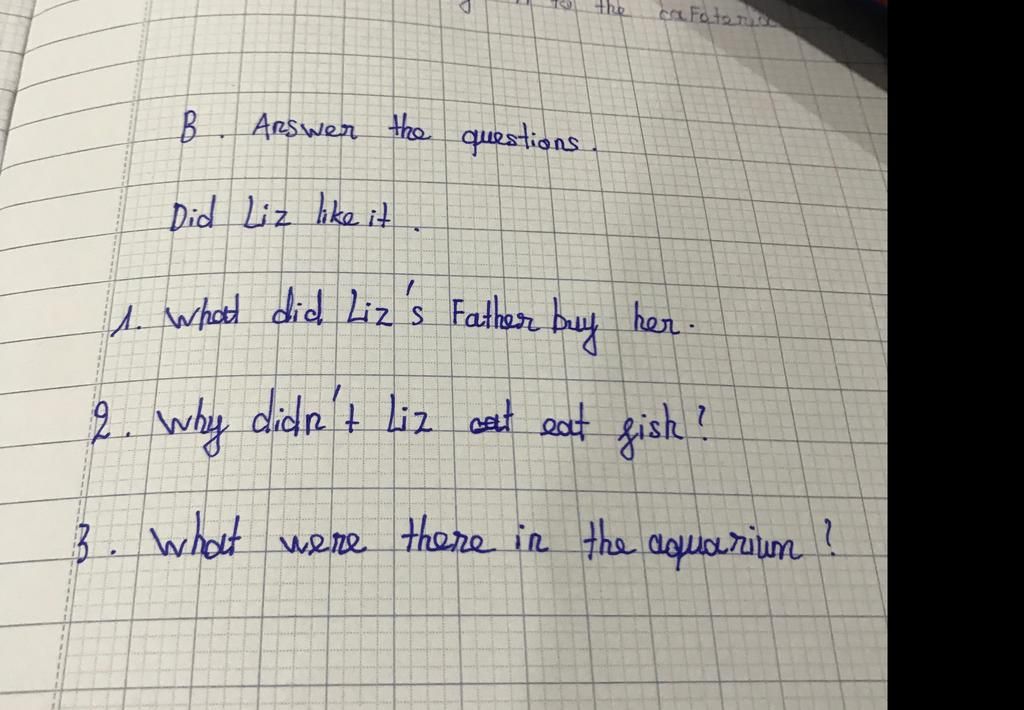 to the cafeteria
B. Answer the questions.
Did Liz like it.
1. What did Liz's Father buy her.
2. Why didn't Liz eat eat fish?
3. What were there in the aquarium?